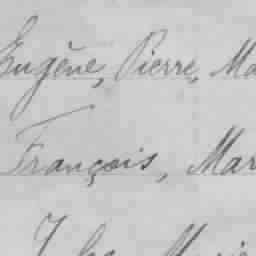 Eugène, Pierre, Ma
François, Mar